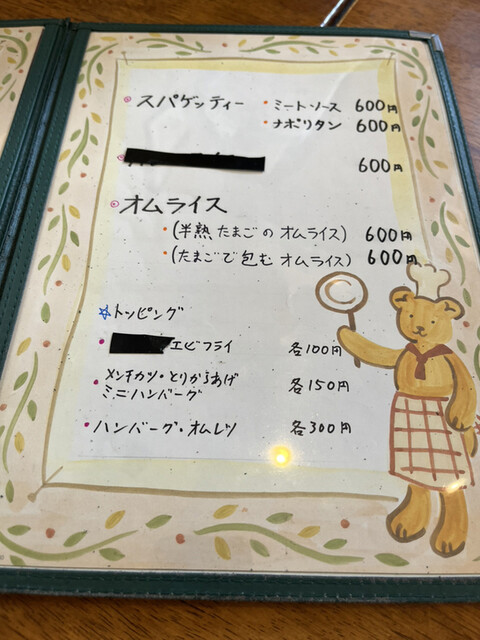 スパゲッティー ・ミートソース 600円
・ナポリタン 600円
600円
オムライス
・(半熟たまごのオムライス) 600円
(たまごで包むオムライス) 600円
☆トッピング
・エビフライ 各100円
・メンチカツ・とりからあげ
ミニハンバーグ 各150円
・ハンバーグ・オムレツ 各300円